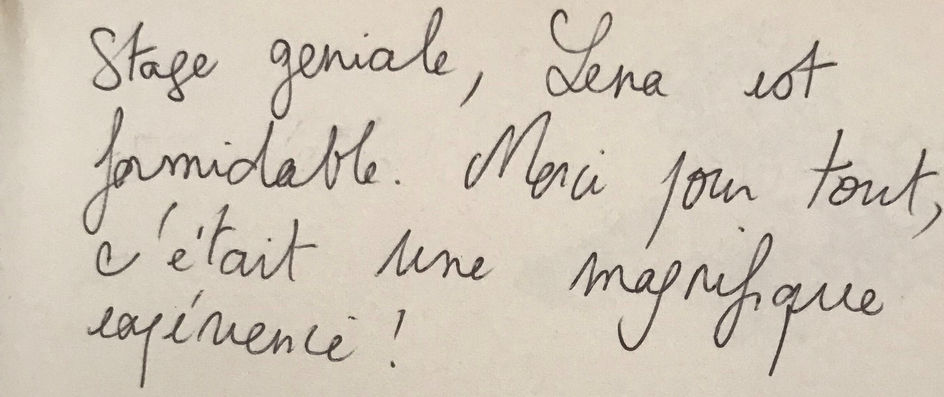 Stage geniale, Lena est
formidable. Merci pour tout,
c'était une magnifique
expérience !